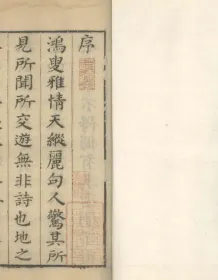 序
鴻叟雅情天縱麗句人驚其所
見所聞所交遊無非詩也地之